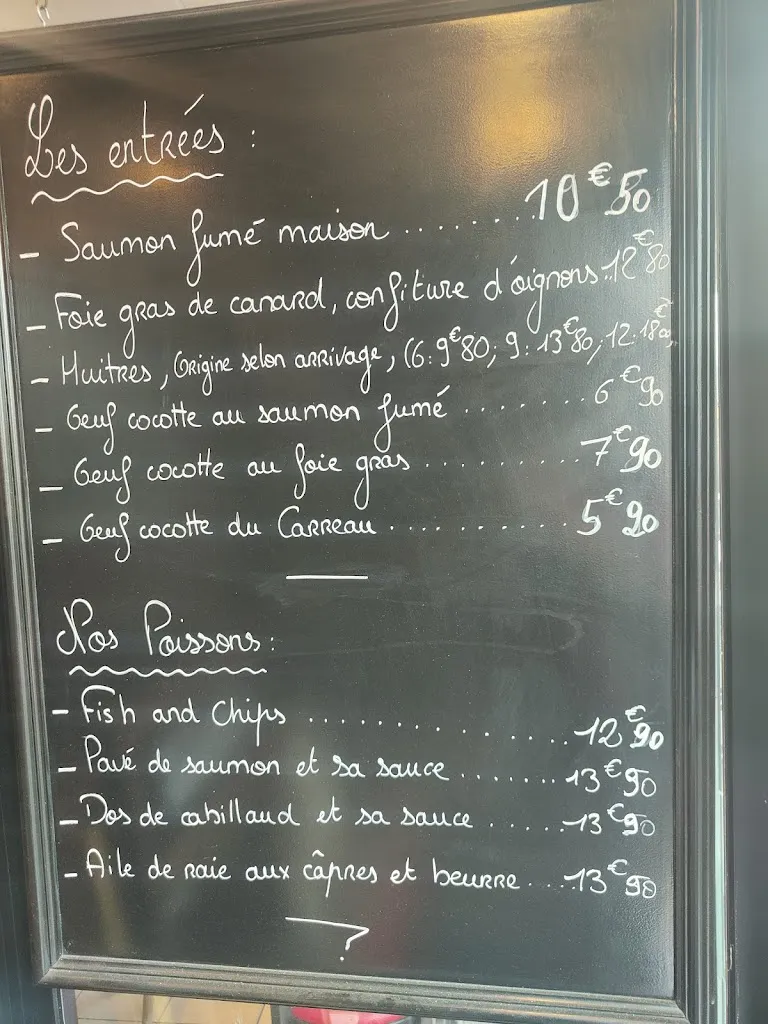 Les entrées :
- Saumon fumé maison ........ 10€50
- Foie gras de canard, confiture d'oignons .. 12€80
- Huitres, Origine selon arrivage, (6: 9€80; 9: 13€80; 12: 18€
- Oeuf cocotte au saumon fumé ....... 6€90
- Oeuf cocotte au foie gras .......... 7€90
- Oeuf cocotte du Carreau ............ 5€90
Nos Poissons :
- Fish and Chips .................. 12€90
- Pavé de saumon et sa sauce ....... 13€90
- Dos de cabillaud et sa sauce ..... 13€90
- Aile de raie aux câpres et beurre .... 13€90